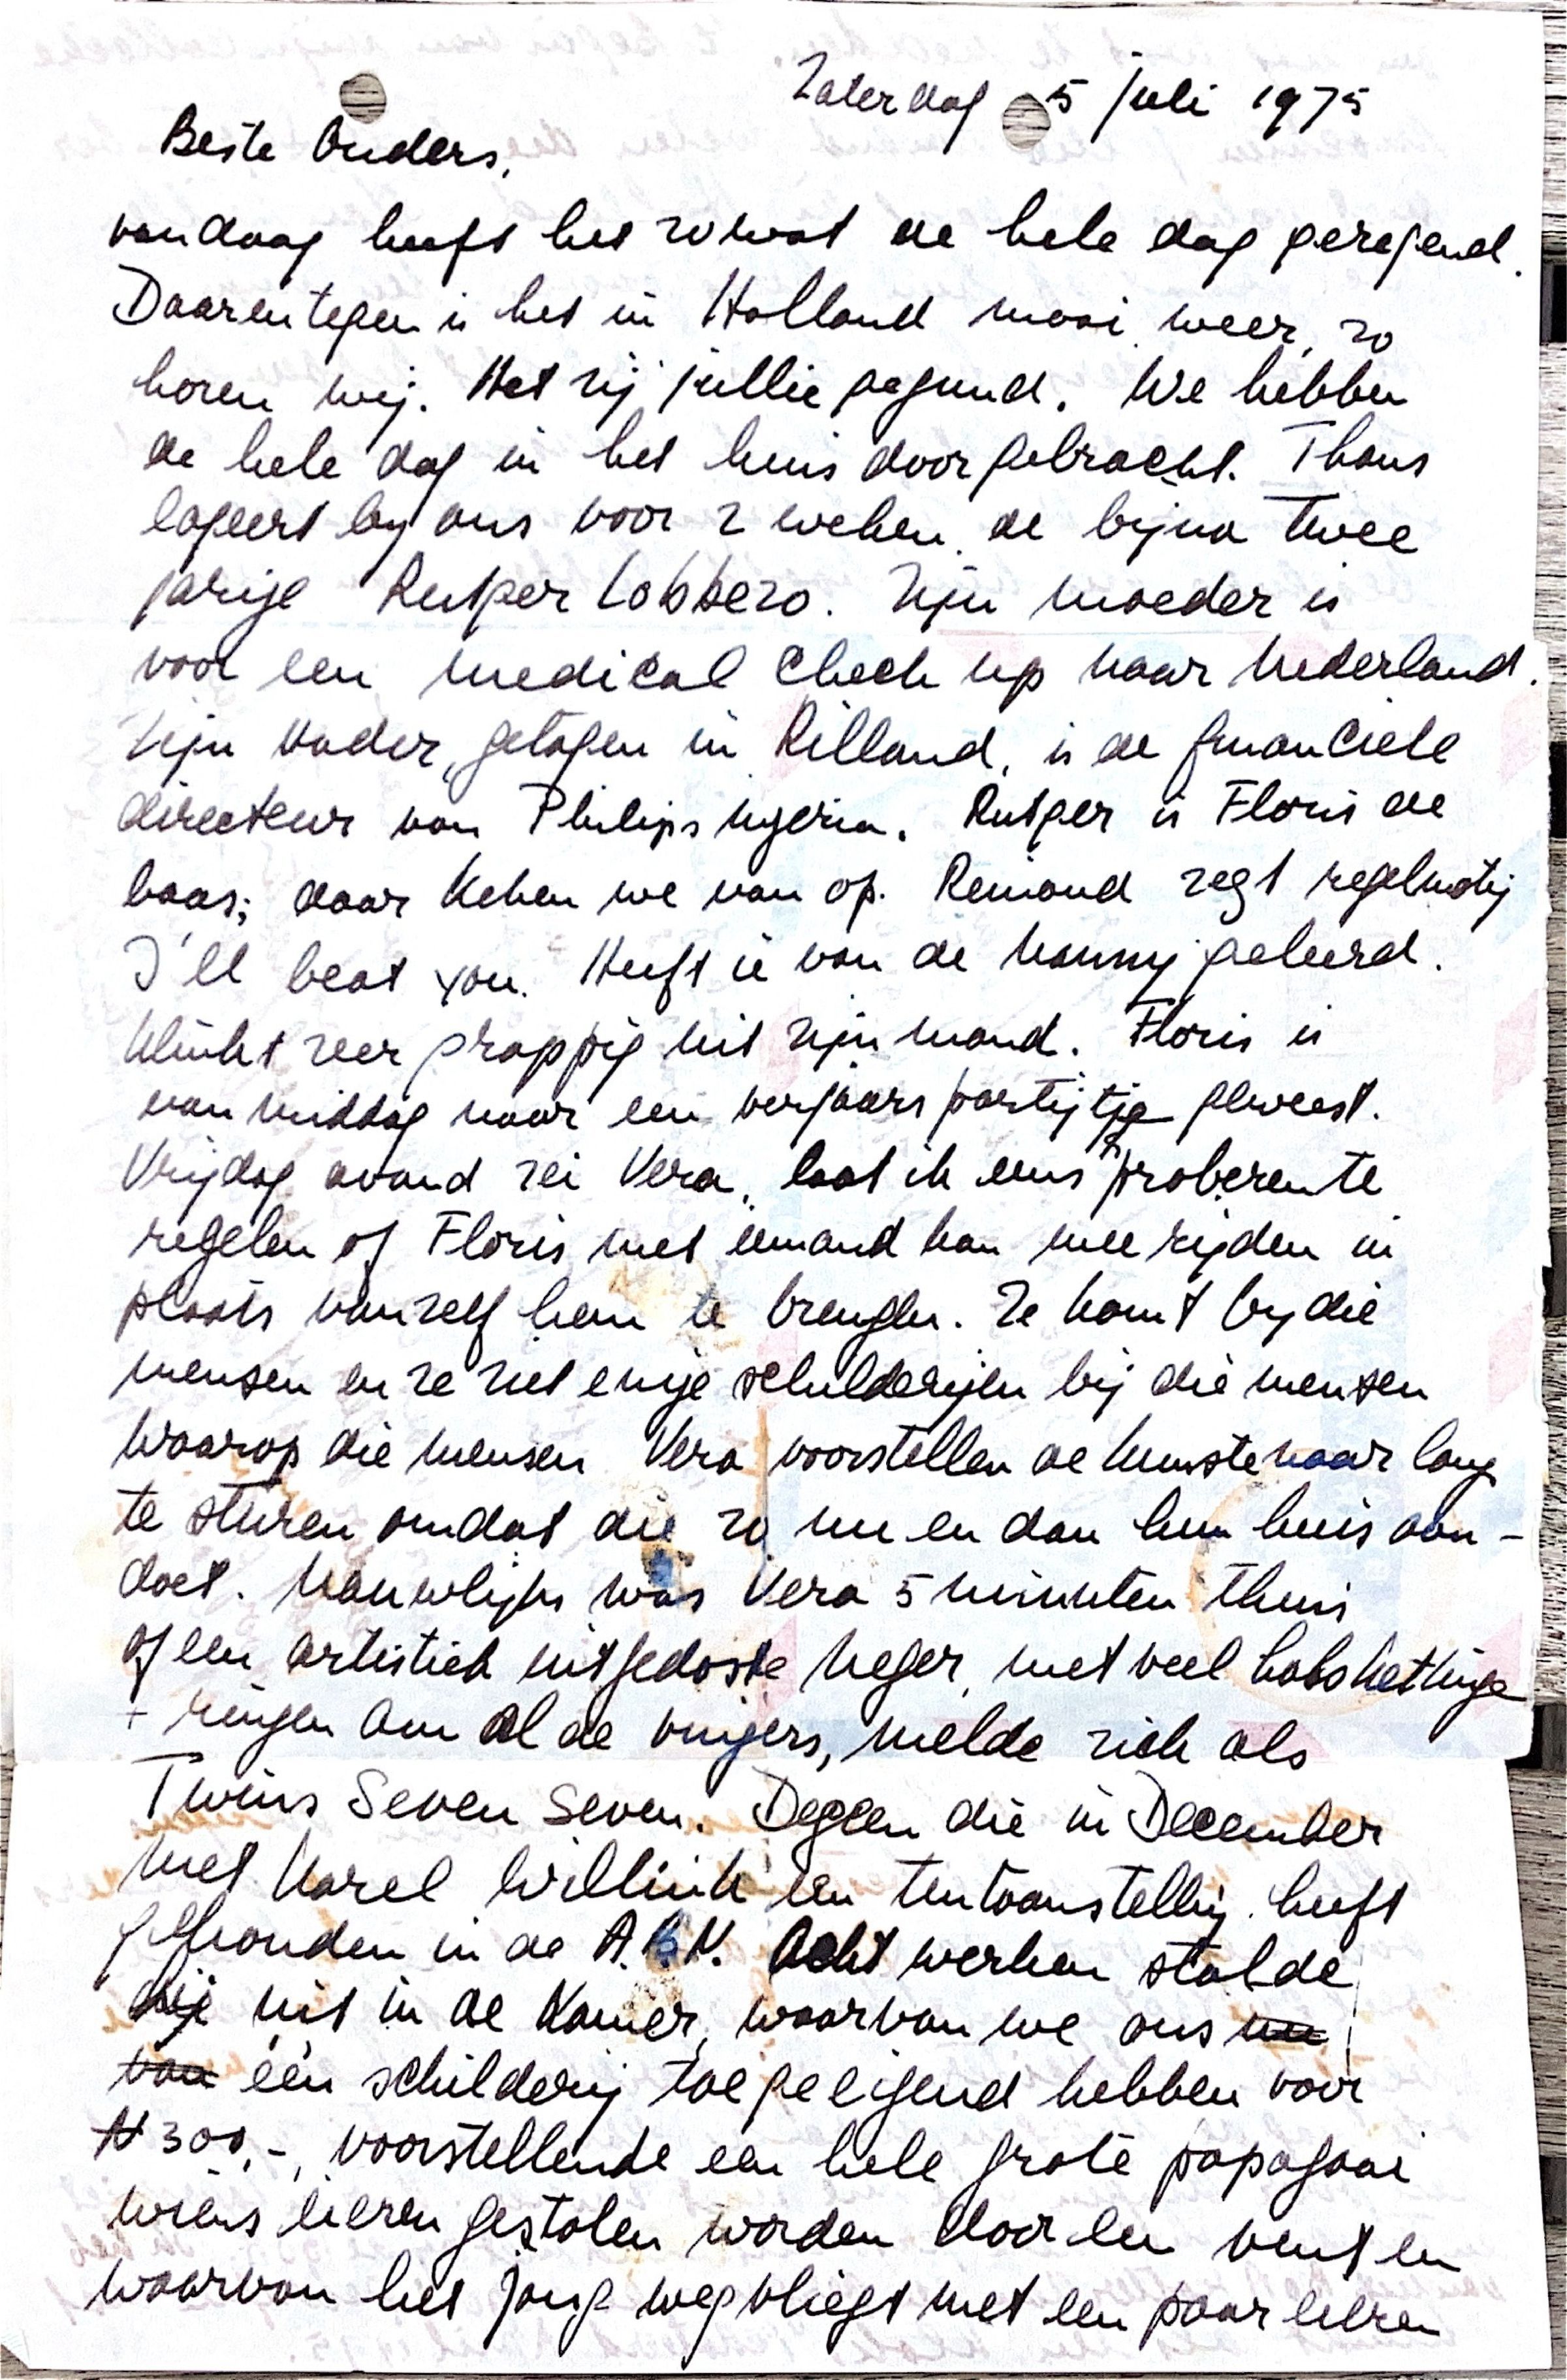 Zaterdag 5 juli 1975
Beste Ouders,
vandaag heeft het zowat de hele dag geregend.
Daarentegen is het in Holland mooi weer, zo
horen wij. Het zij jullie gegund. We hebben
de hele dag in het huis doorgebracht. Thans
logeert bij ons voor 2 weken de bijna twee
jarige Rutger Lobbezo. Zijn moeder is
voor een medical check up naar Nederland.
Zijn vader, getogen in Rilland, is de financiele
directeur van Philips Nigeria. Rutger is Floris de
baas; daar keken we van op. Remond zegt regelmatig
I'll beat you. Heeft ie van de nanny geleerd.
Klinkt zeer grappig uit zijn mond. Floris is
van middag naar een verjaarspartijtje geweest.
Vrijdag avond zei Vera, laat ik eens proberen te
regelen of Floris met iemand kan mee rijden in
plaats vanzelf hem te brengen. Ze komt bij die
mensen en ze ziet enige schilderijen bij die mensen
waarop die mensen Vera voorstellen de kunstenaar langs
te sturen omdat die zo nu en dan hun huis aan-
doet. Nauwelijks was Vera 5 minuten thuis
of een artistiek uitgedoste neger, met veel halskettingen
+ ringen aan al de vingers, melde zich als
Twins Seven Seven. Degeen die in December
met Karel Willink een tentoonstelling heeft
gehouden in de A.B.N. Acht werken stalde
hij uit in de kamer, waarvan we ons
van één schilderij toegeeigend hebben voor
₦ 300,-, voorstellende een hele grote papagaai
wiens eieren gestolen worden door een vent en
waarvan het jong wegvliegt met een paar eieren